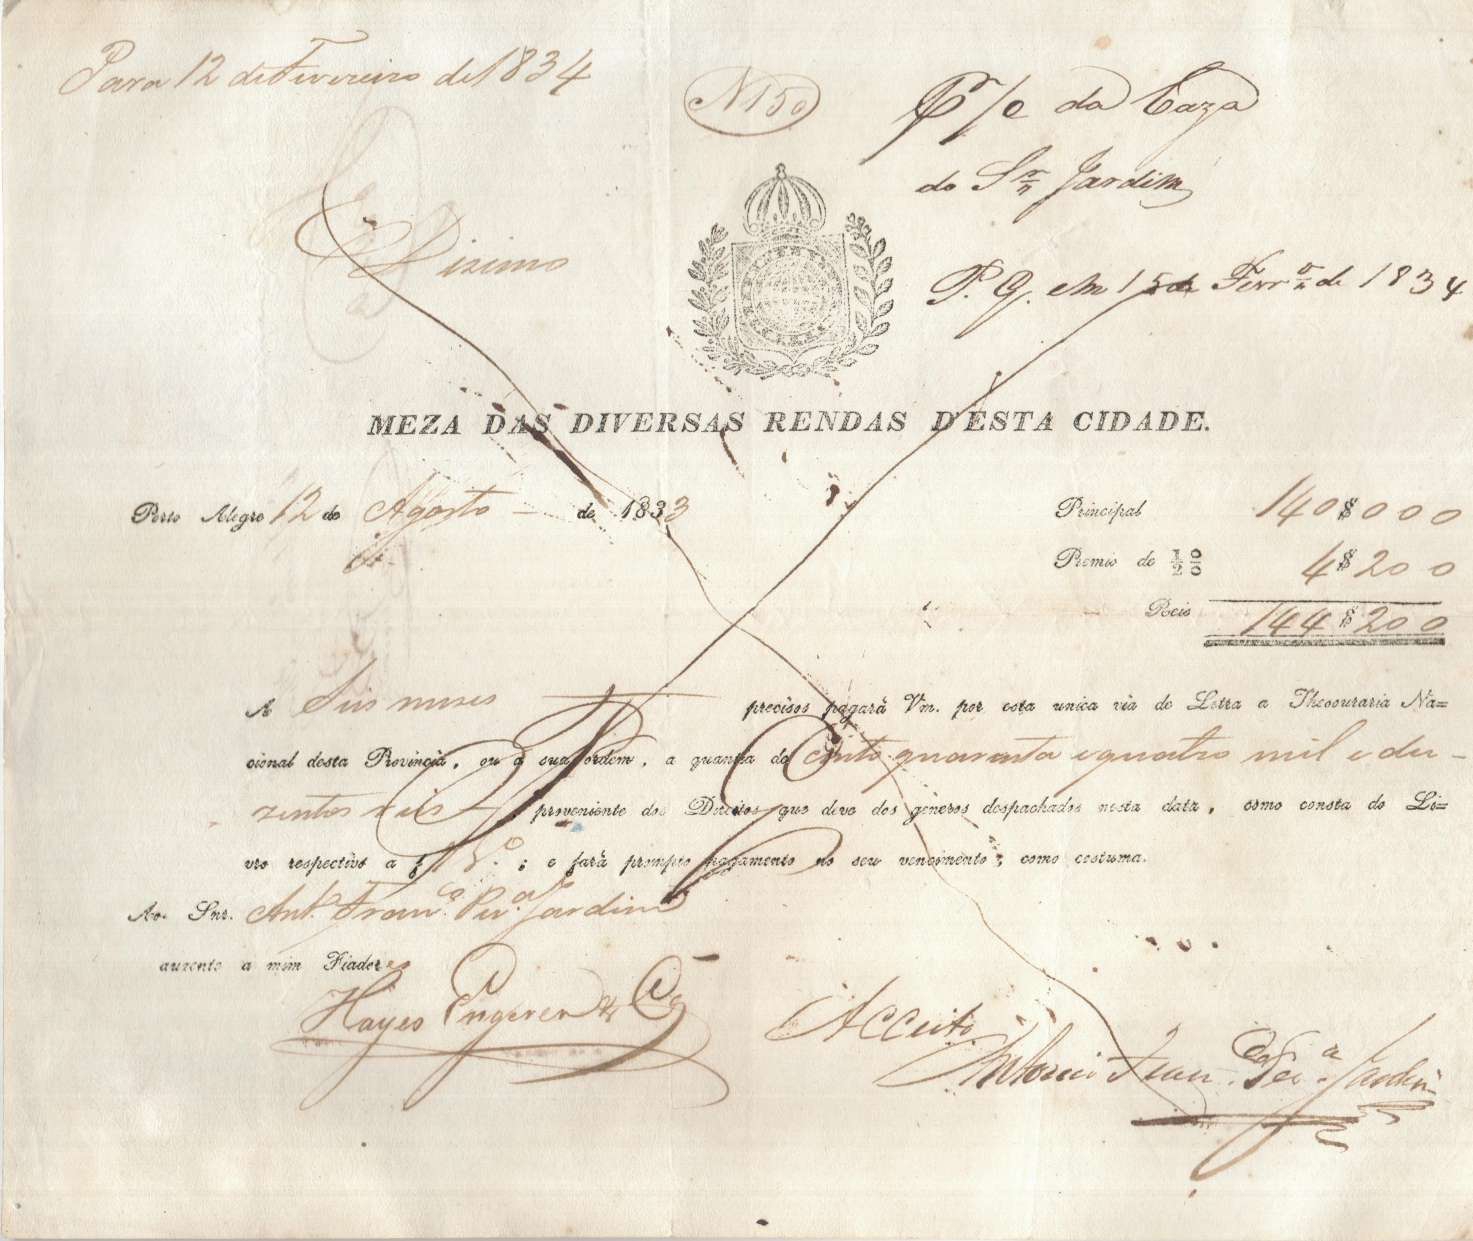 Para 12 de Fevereiro de 1834
N 150
P / e da Caza
do Snr Jardim
Dizimo
P. G. em 15 de Fevr.º de 1834
MEZA DAS DIVERSAS RENDAS D'ESTA CIDADE.
Porto Alegre 12 de Agosto de 1833
Principal 140$000
Premio de ½ % 4$200
Reis 144$200
A Seis mezes precisos pagará Vm. por esta unica via de Letra a Thesouraria Na=
cional desta Provincia, ou á sua ordem, a quantia de cento quarenta e quatro mil e du-
zentos reis, proveniente dos Direitos que deve dos generos despachados nesta data, como consta do Li=
vro respectivo a f ; e fará prompto pagamento no seu vencimento, como costuma.
Ao Snr. Ant.º Fran.co Per.ª Jardim
auzente a mim Fiador es
Hayes Engerer & Cª
Acceito
Antonio Fran.co Per.ª Jardim